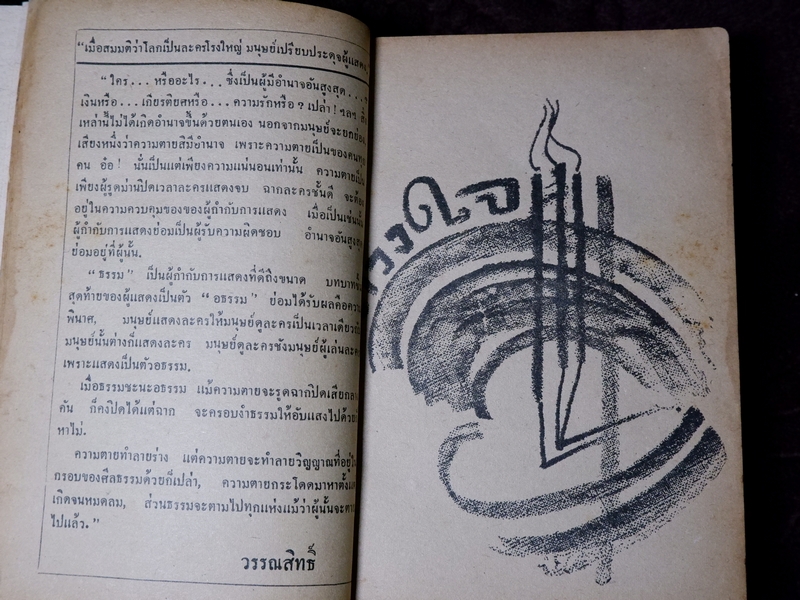 "เมื่อสมมติว่าโลกเป็นละครโรงใหญ่ มนุษย์เปรียบประดุจผู้แสดง
"ใคร... หรืออะไร... ซึ่งเป็นผู้มีอำนาจอันสูงสุด...
เงินหรือ... เกียรติยศหรือ... ความรักหรือ? เปล่า! ฯลฯ
เหล่านี้ไม่ได้เกิดอำนาจขึ้นด้วยตนเอง นอกจากมนุษย์จะยกย่อง
เสียงหนึ่งว่าความตายสิมีอำนาจ เพราะความตายเป็นของคน
คน อ๋อ! นั่นเป็นแต่เพียงความแน่นอนเท่านั้น ความตายเป็น
เพียงผู้รูดม่านปิดเวลาละครแสดงจบ ฉากละครชั้นดี
อยู่ในความควบคุมของของผู้กำกับการแสดง เมื่อเป็นเช่นนั้น
ผู้กำกับการแสดงย่อมเป็นผู้รับความผิดชอบ อำนาจอันสูงสุด
ย่อมอยู่ที่ผู้นั้น.
"ธรรม" เป็นผู้กำกับการแสดงที่ดีถึงขนาด บทบาท
สุดท้ายของผู้แสดงเป็นตัว "อธรรม" ย่อมได้รับผลคือความ
พินาศ, มนุษย์แสดงละครให้มนุษย์ดูละครเป็นเวลาเดียว
มนุษย์นั้นต่างก็แสดงละคร มนุษย์ดูละครชังมนุษย์ผู้เล่นละคร
เพราะแสดงเป็นตัวอธรรม.
เมื่อธรรมชะนะอธรรม แม้ความตายจะรูดฉากปิดเสีย
คัน ก็คงปิดได้แต่ฉาก จะครอบงำธรรมให้อับแสงไปด้วย
หาไม่.
ความตายทำลายร่าง แต่ความตายจะทำลายวิญญาณที่อยู่ใน
กรอบของศีลธรรมด้วยก็เปล่า, ความตายกระโดดมาหาตั้งแต่
เกิดจนหมดลม, ส่วนธรรมจะตามไปทุกแห่งแม้ว่าผู้นั้นจะตาย
ไปแล้ว."
วรรณสิทธิ์
วงใจ